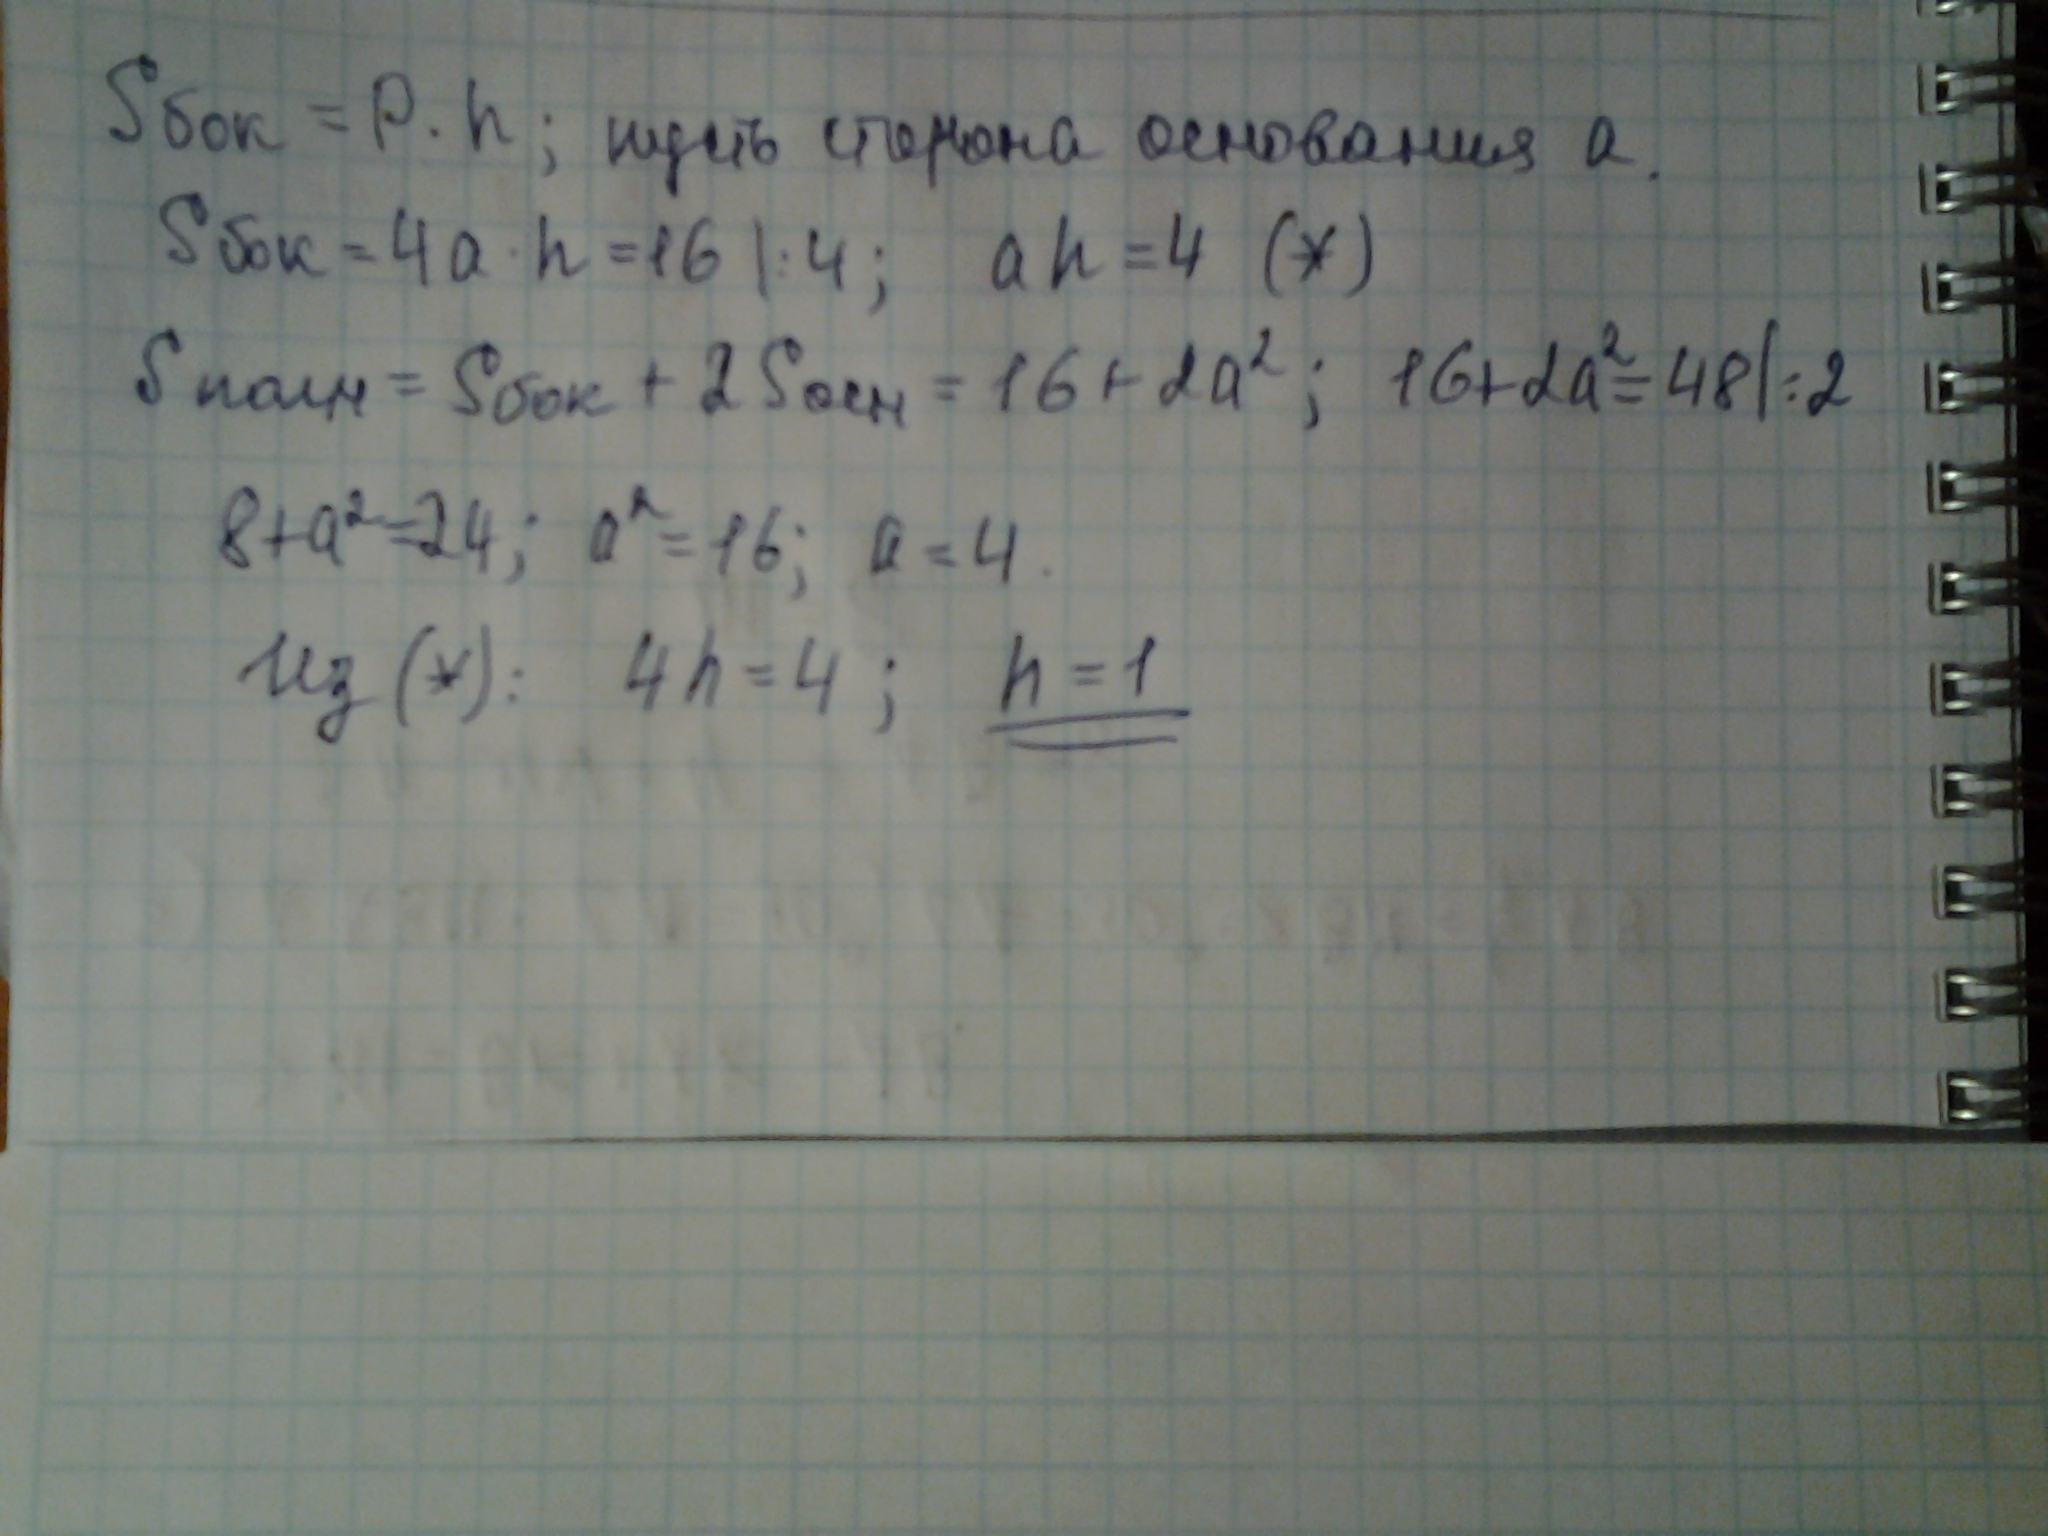 Sбок = P · h; пусть сторона основания a.
Sбок = 4a · h = 16 |:4; ah = 4 (*)
Sполн = Sбок + 2Sосн = 16 + 2a²; 16 + 2a² = 48 |:2
8 + a² = 24; a² = 16; a = 4.
Из (*): 4h = 4; h = 1